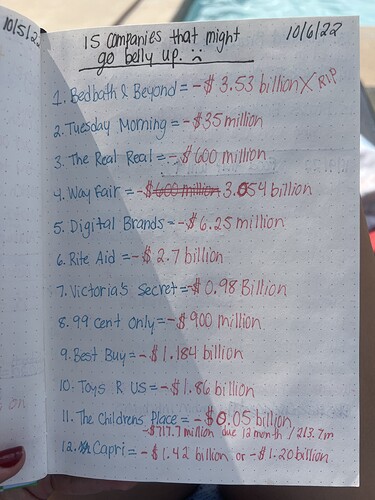 10/5/22
15 Companies that might 10/6/22
go belly up. :(
1. Bedbath & Beyond = -$ 3.53 billion X RIP
2. Tuesday Morning = -$35 million
3. The Real Real = -$ 600 million
4. Way Fair = -$600 million 3.054 billion
5. Digital Brands = -$ 6.25 million
6. Rite Aid = -$ 2.7 billion
7. Victoria's Secret = -$ 0.98 Billion
8. 99 cent only = -$ 900 million
9. Best Buy = -$ 1.184 billion
10. Toys R US = -$ 1.86 billion
11. The Childrens Place = -$0.05 billion
-$717.7 million due 12 month / 213.7m
12. Capri = -$ 1.42 billion or -$1.20 billion
on